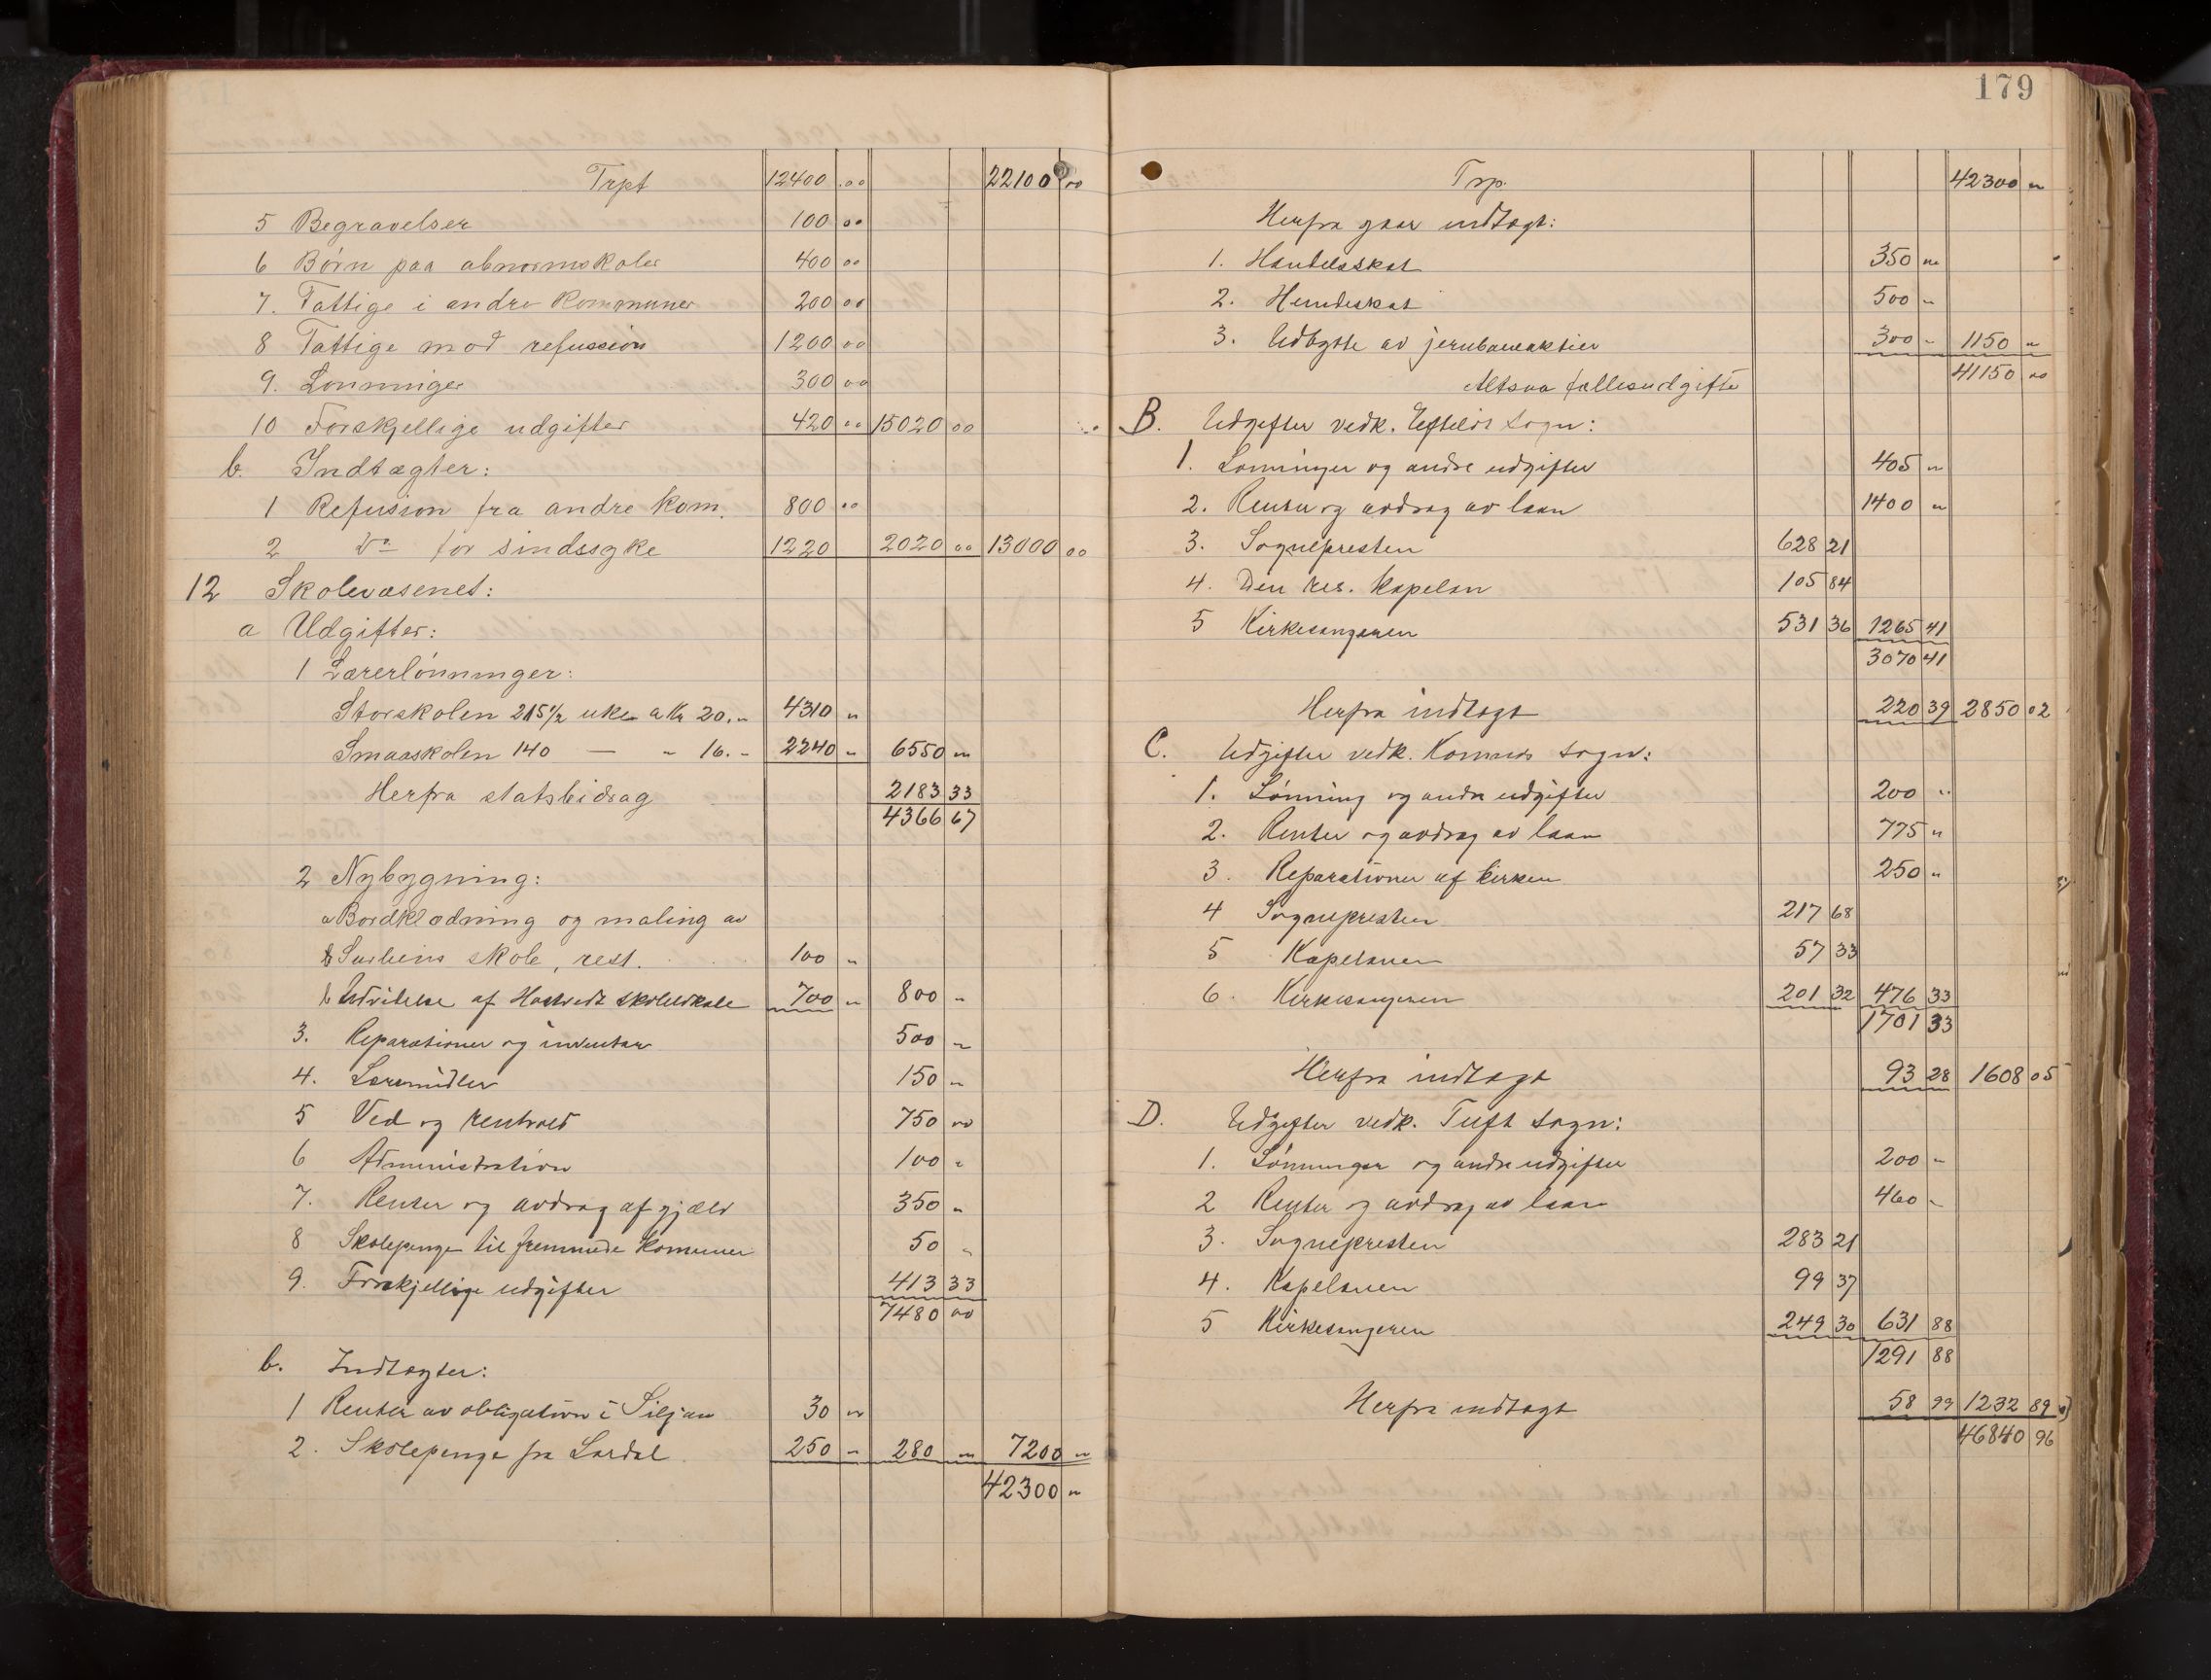 Trpt 12400 00 22100 00
5 Begravelser 100 00
6 Børn paa abnormskoler 400 00
7. Fattige i andre kommuner 200 00
8 Fattige mod refussion 1200 00
9. Lønninger 300 00
10 Forskjellige udgifter 420 00 15020 00
b. Indtægter:
1 Refusion fra andre kom. 800 00
2 Do for sindssyke 1220 2020 00 13000 00
12 Skolevæsenet:
a Udgifter:
1 Lærerlønninger:
Storskolen 215 1/2 uke a Kr 20.- 4310 "
Smaaskolen 140 — " 16.- 2240 " 6550 "
Herfra statsbidrag 2183 33
4366 67
2 Nybygning:
a Bordklædning og maling av
skole, rest. 100 "
b Udvidelse af Hostvedt skolelokale 700 " 800 "
3. Reparationer og inventar 500 "
4. Læremidler 150 "
5 Ved og renhold 750 00
6 Administration 100 "
7. Renter og avdrag af gjæld 350 "
8 Skolepenge til fremmede komuner 50 "
9. Forskjellige udgifter 413 33
7480 00
b. Indtægter:
1 Renter av obligation i Siljan 30 "
2. Skolepenge fra Lardal 250 " 280 " 7200 "
42300 "
179
Trp. 42300 "
Herfra gaar indtægt:
1. Handelsskat 350 "
2. Hundeskat 500 "
3. Udbytte av jernbaneaktier 300 " 1150 "
Altsaa fællesudgifter 41150 00
B. Udgifter vedk. Efteløt sogn:
1. Lønninger og andre udgifter 405 "
2. Renter og avdrag av laan 1400 "
3. Sognepresten 628 21
4. Den res. kapelan 105 84
5 Kirkesangeren 531 36 1265 41
3070 41
Herfra indtægt 220 39 2850 02
C. Udgifter vedk. Komnes sogn:
1. Lønning og andre udgifter 200 "
2. Renter og avdrag av laan 775 "
3. Reparationer af kirken 250 "
4 Sognepresten 217 68
5 Kapelanen 57 33
6. Kirkesangeren 201 32 476 33
1701 33
Herfra indtægt 93 28 1608 05
D. Udgifter vedk. Tuft sogn:
1. Lønninger og andre udgifter 200 "
2 Renter og avdrag av laan 460 "
3. Sognepresten 283 21
4. Kapelanen 99 37
5 Kirkesangeren 249 30 631 88
1291 88
Herfra indtægt 58 99 1232 89
46840 96